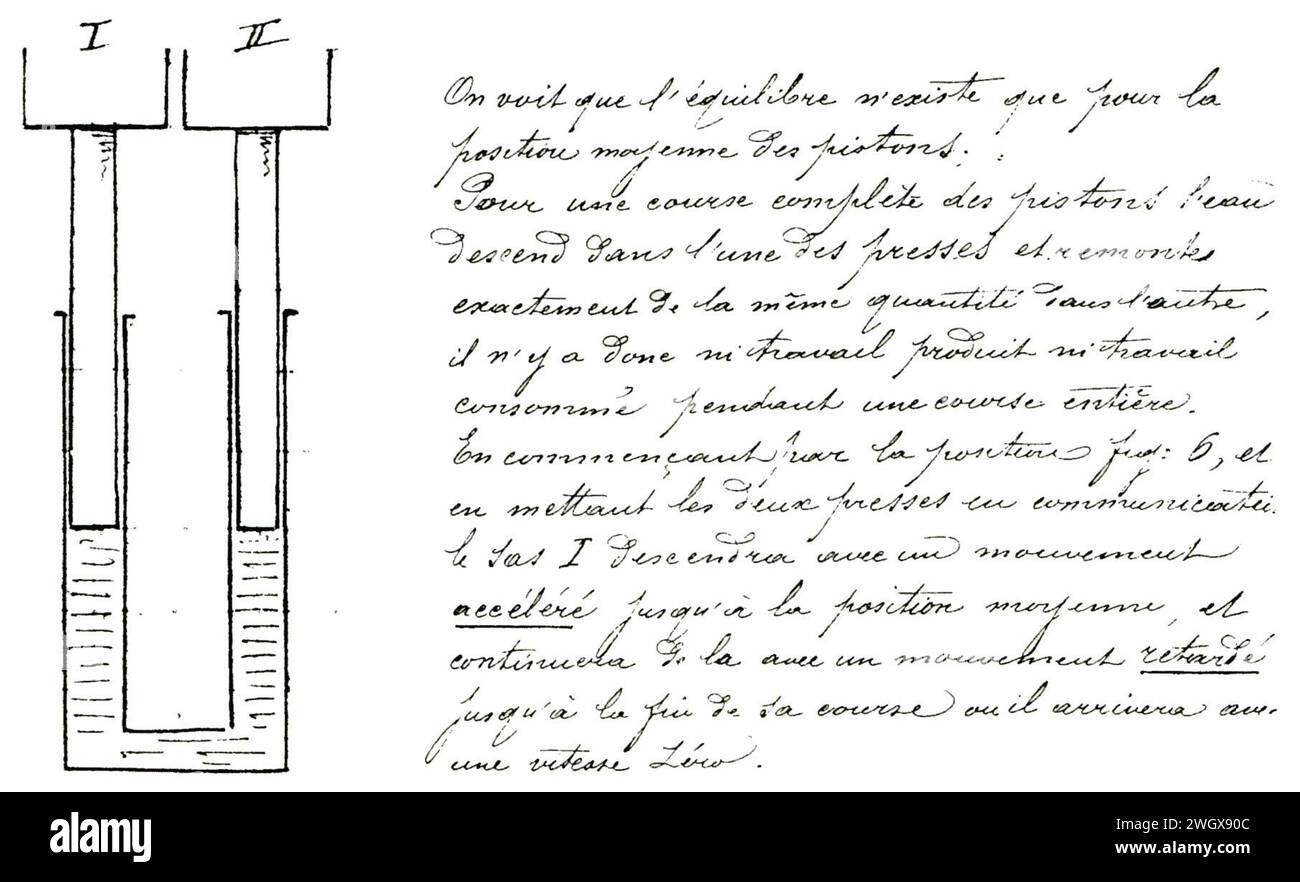 I II
On voit que l'équilibre n'existe que pour la
position moyenne des pistons.
Pour une course complète des pistons l'eau
descend dans l'une des presses et remonte
exactement de la même quantité dans l'autre,
il n'y a donc ni travail produit ni travail
consommé pendant une course entière.
En commençant par la position fig: 6, et
en mettant les deux presses en communicatio
le sas I descendra avec un mouvement
accéléré jusqu'à la position moyenne, et
continuera de la avec un mouvement retardé
jusqu'à la fin de sa course ou il arrivera avec
une vitesse Zéro.
alamy
Image ID: 2WGX90C
www.alamy.com